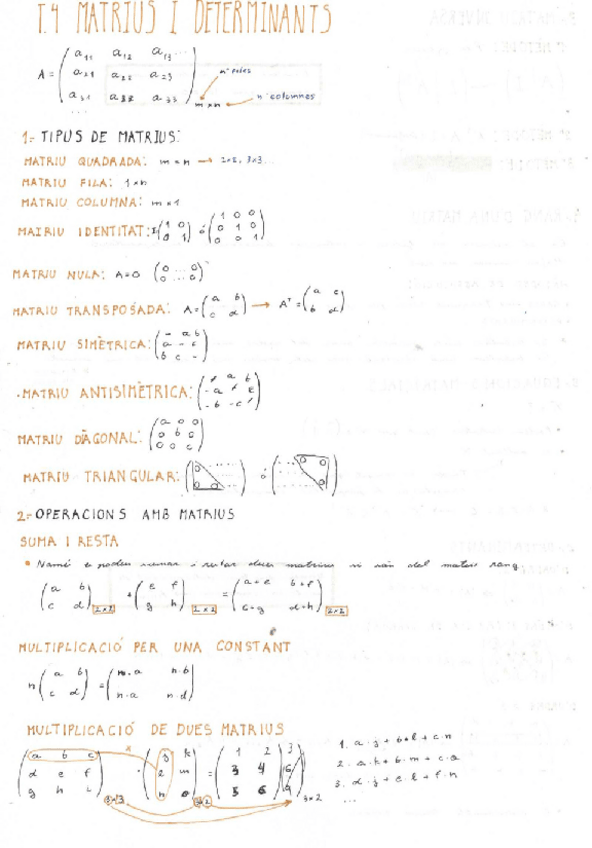 T.4 MATRIUS I DETERMINANTS
A = ( a11 a12 a13 ...
a21 a22 a23
a31 a32 a33 ) m×n
nº files
nº columnes
1- TIPUS DE MATRIUS:
MATRIU QUADRADA: m=n → 2×2, 3×3...
MATRIU FILA: 1×n
MATRIU COLUMNA: m×1
MATRIU IDENTITAT: I ( 1 0
0 1 ) ó ( 1 0 0
0 1 0
0 0 1 )
MATRIU NULA: A=0 ( 0 ... 0
0 ... 0 )
MATRIU TRANSPOSADA: A = ( a b
c d ) → Aᵗ = ( a c
b d )
MATRIU SIMÈTRICA: ( - a b
a - c
b c - )
MATRIU ANTISIMÈTRICA:
MATRIU DIAGONAL: ( a 0 0
0 b 0
0 0 c )
MATRIU TRIANGULAR: ó
2- OPERACIONS AMB MATRIUS
SUMA I RESTA
• Només es poden sumar i restar dues matrius si són del mateix rang
( a b
c d ) 2×2 + ( e f
g h ) 2×2 = ( a+e b+f
c+g d+h ) 2×2
MULTIPLICACIÓ PER UNA CONSTANT
n ( a b
c d ) = ( n·a n·b
n·a n·d )
MULTIPLICACIÓ DE DUES MATRIUS
( a b c
d e f
g h i ) 3×3 · ( j k
l m
n o ) 3×2 = ( 1 2
3 4
5 6 ) 3×2
1. a·j + b·l + c·n
2. a·k + b·m + c·o
3. d·j + e·l + f·n
...